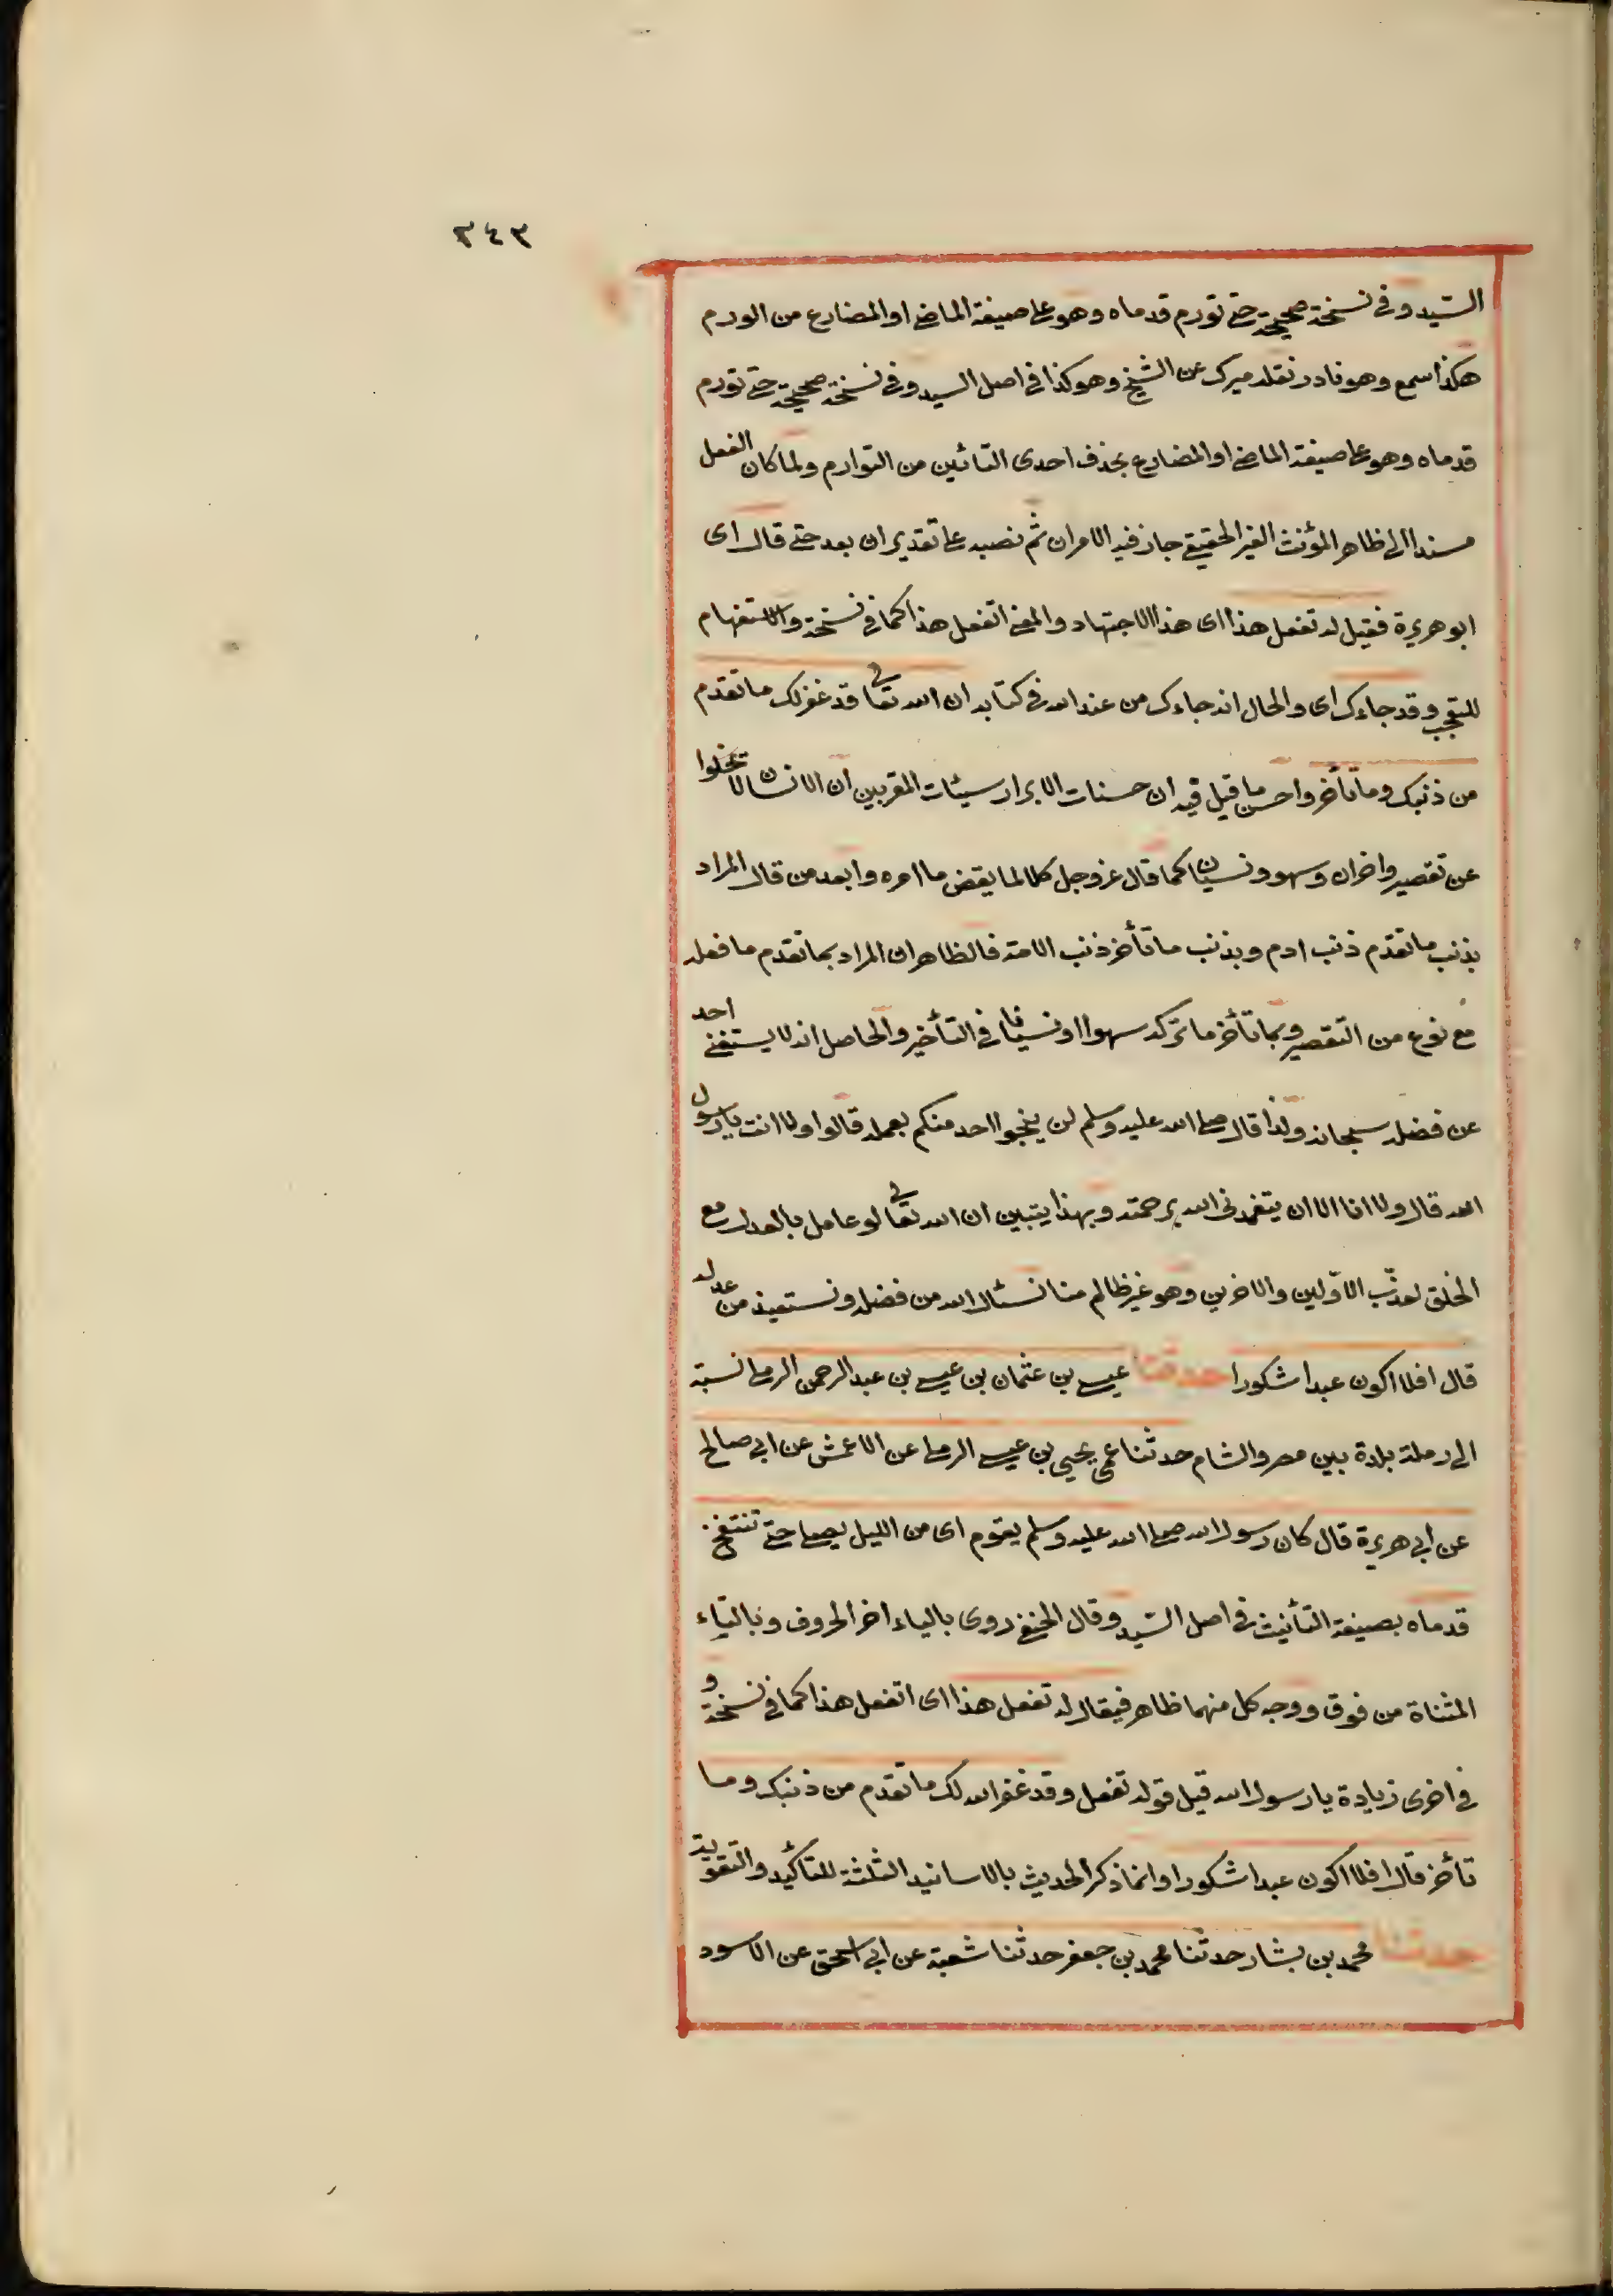 ٣٤٣
السّيد وفي نسخة صحيحة حتى تورم قدماه وهو على صيغة الماضي او المضارع من الورم
هكذا سمع وهو نادر نقله ميرك عن الشيخ وهو كذا في اصل السيد وفي نسخة صحيحة حتى تورم
قدماه وهو على صيغة الماضي او المضارع بحذف احدى التائين من التوارم ولما كان الفعل
مسندا الى ظاهر المؤنث الغير الحقيقي جاز فيه الامران ثم نصبه على تقدير ان بعد حتى قال اى
ابو هريرة فقيل له تفعل هذا اى هذا الاجتهاد والمعنى اتفعل هذا كما في نسخة والاستفهام
للتعجب وقد جاءك اى والحال انه جاءك من عند الله في كتابه ان الله تعالى قد غفر لك ما تقدم
من ذنبك وما تأخر واحسن ما قيل فيه ان حسنات الابرار سيئات المقربين ان الانسان لا يخلوا
عن تقصير واخران وسهو ونسيان كما قال عز وجل كلا لما يقض ما امره وابعد من قال المراد
بذنب ما تقدّم ذنب ادم وبذنب ما تأخر ذنب الامة فالظاهر ان المراد بما تقدم ما فعله
مع نوع من التقصير وبما تأخر ما تركه سهوا او نسيانا في التأخير والحاصل انه لا يستغنى احد
عن فضله سبحانه ولذا قال صلى الله عليه وسلم لن ينجوا احد منكم بعمله قالوا ولا انت يا رسول
الله قال ولا انا الا ان يتغمدني الله برحمته وبهذا يتبين ان الله تعالى لو عامل بالعدل مع
الخلق لعذّب الاوّلين والاخرين وهو غير ظالم منا نسئال الله من فضله ونستعيذ من عدله
قال افلا اكون عبدا شكورا حدثنا عيسى بن عثمان بن عيسى بن عبد الرحمن الرملى نسبة
الى رملة بلدة بين مصر والشام حدثنا عمى يحيى بن عيسى الرملى عن الاعمش عن ابي صالح
عن ابي هريرة قال كان رسول الله صلى الله عليه وسلم يقوم اى من الليل يصلى حتى تنتفخ
قدماه بصيغة التأنيث في اصل السّيد وقال الحنفي روى بالياء اخر الحروف وبالتاء
المثناة من فوق ووجه كل منهما ظاهر فيقال له تفعل هذا اى اتفعل هذا كما في نسخة و
في اخرى زيادة يا رسول الله قبل قوله تفعل وقد غفر الله لك ما تقدم من ذنبك وما
تأخر قال افلا اكون عبدا شكورا وانما ذكر الحديث بالاسانيد الثلثة للتاكيد والتقوية
حدثنا محمد بن بشار حدثنا محمد بن جعفر حدثنا شعبة عن ابي اسحق عن الاسود